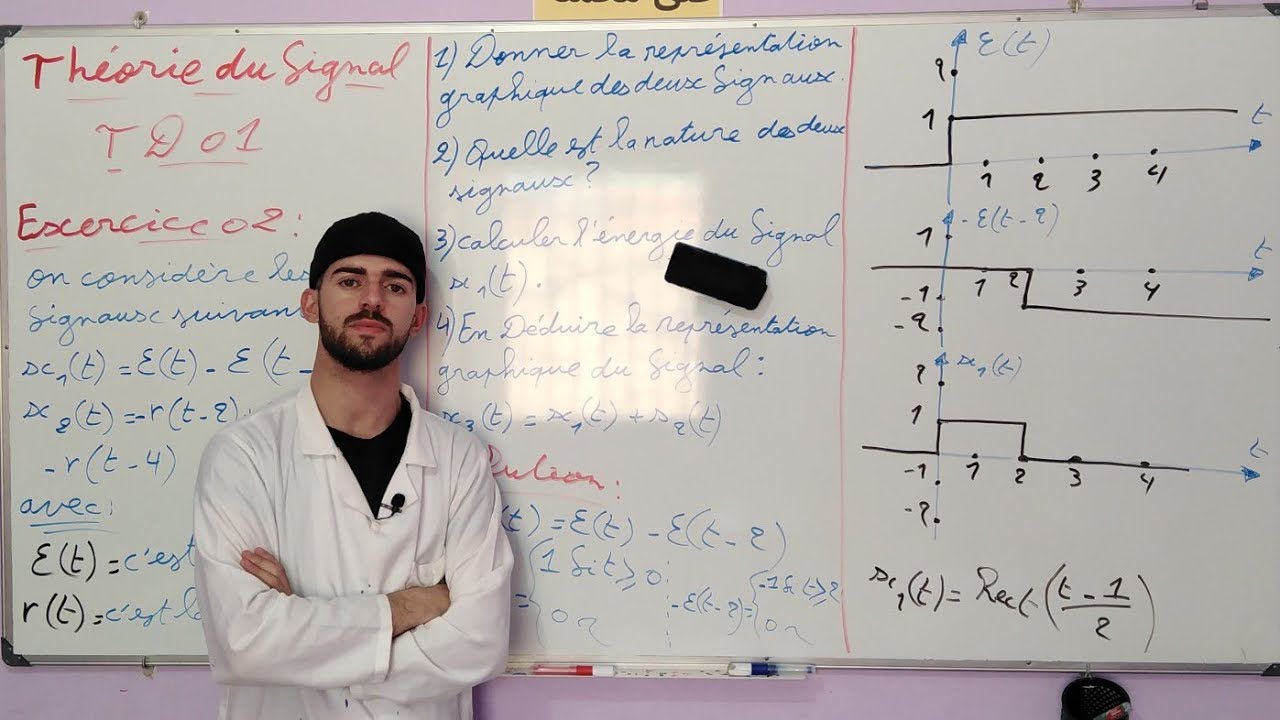 Théorie du Signal
TD 01
Excercice 02:
on considère les
Signaux suivan
x₁(t) = Ɛ(t) - Ɛ(t -
x₂(t) = -r(t-2)
-r(t-4)
avec:
Ɛ(t) = c'est
r(t) = c'est
1) Donner la représentation
graphique des deux Signaux.
2) Quelle est la nature des deux
signaux?
3) calculer l'énergie du Signal
x₁(t).
4) En Déduire la représentation
graphique du Signal:
x₃(t) = x₁(t) + x₂(t)
lution:
(t) = Ɛ(t) - Ɛ(t-2)
= {1 Si t ≥ 0
0
-Ɛ(t-2) = {-1 Si t ≥ 2
0
Ɛ(t)
2
1
t
1 2 3 4
-Ɛ(t-2)
1
t
1 2 3 4
-1
-2
x₁(t)
2
1
t
-1 1 2 3 4
-2
x₁(t) = Rect((t-1)/2)